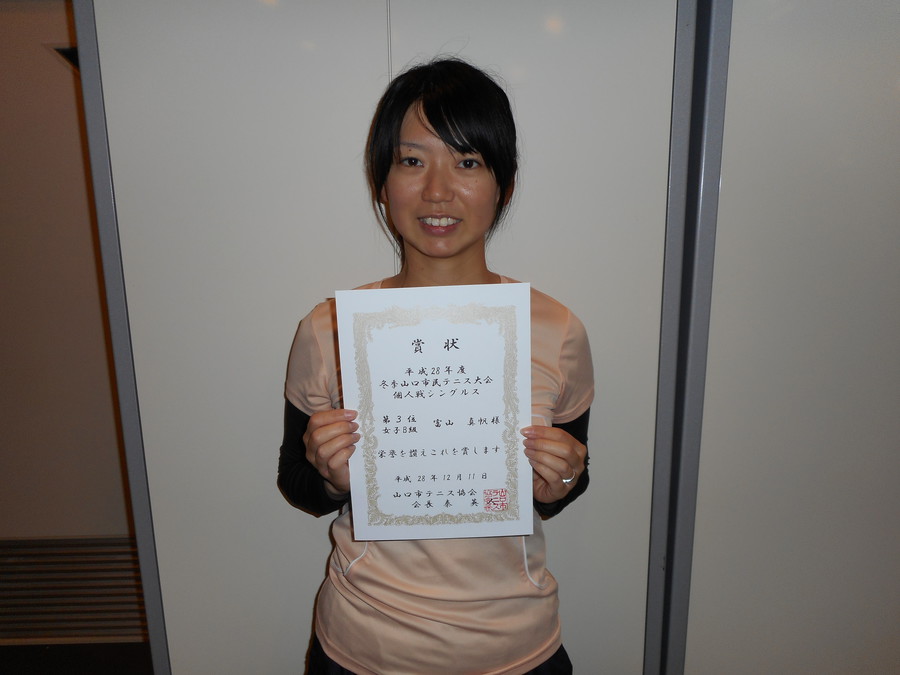 賞状
平成28年度
冬季山口市民テニス大会
個人戦シングルス
第3位
女子B級
富山 真帆様
栄誉を讃えこれを賞します
平成28年12月11日
山口市テニス協会
会長 秦 英